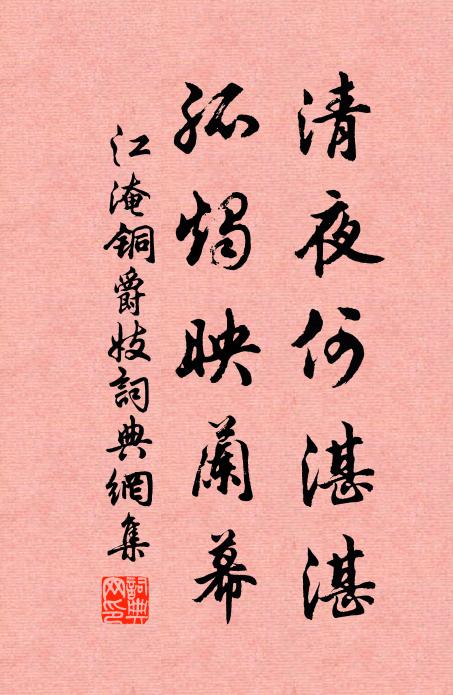 清夜何湛湛
孤燭映蘭幕
江淹銅爵妓詞典網集
詞典网印